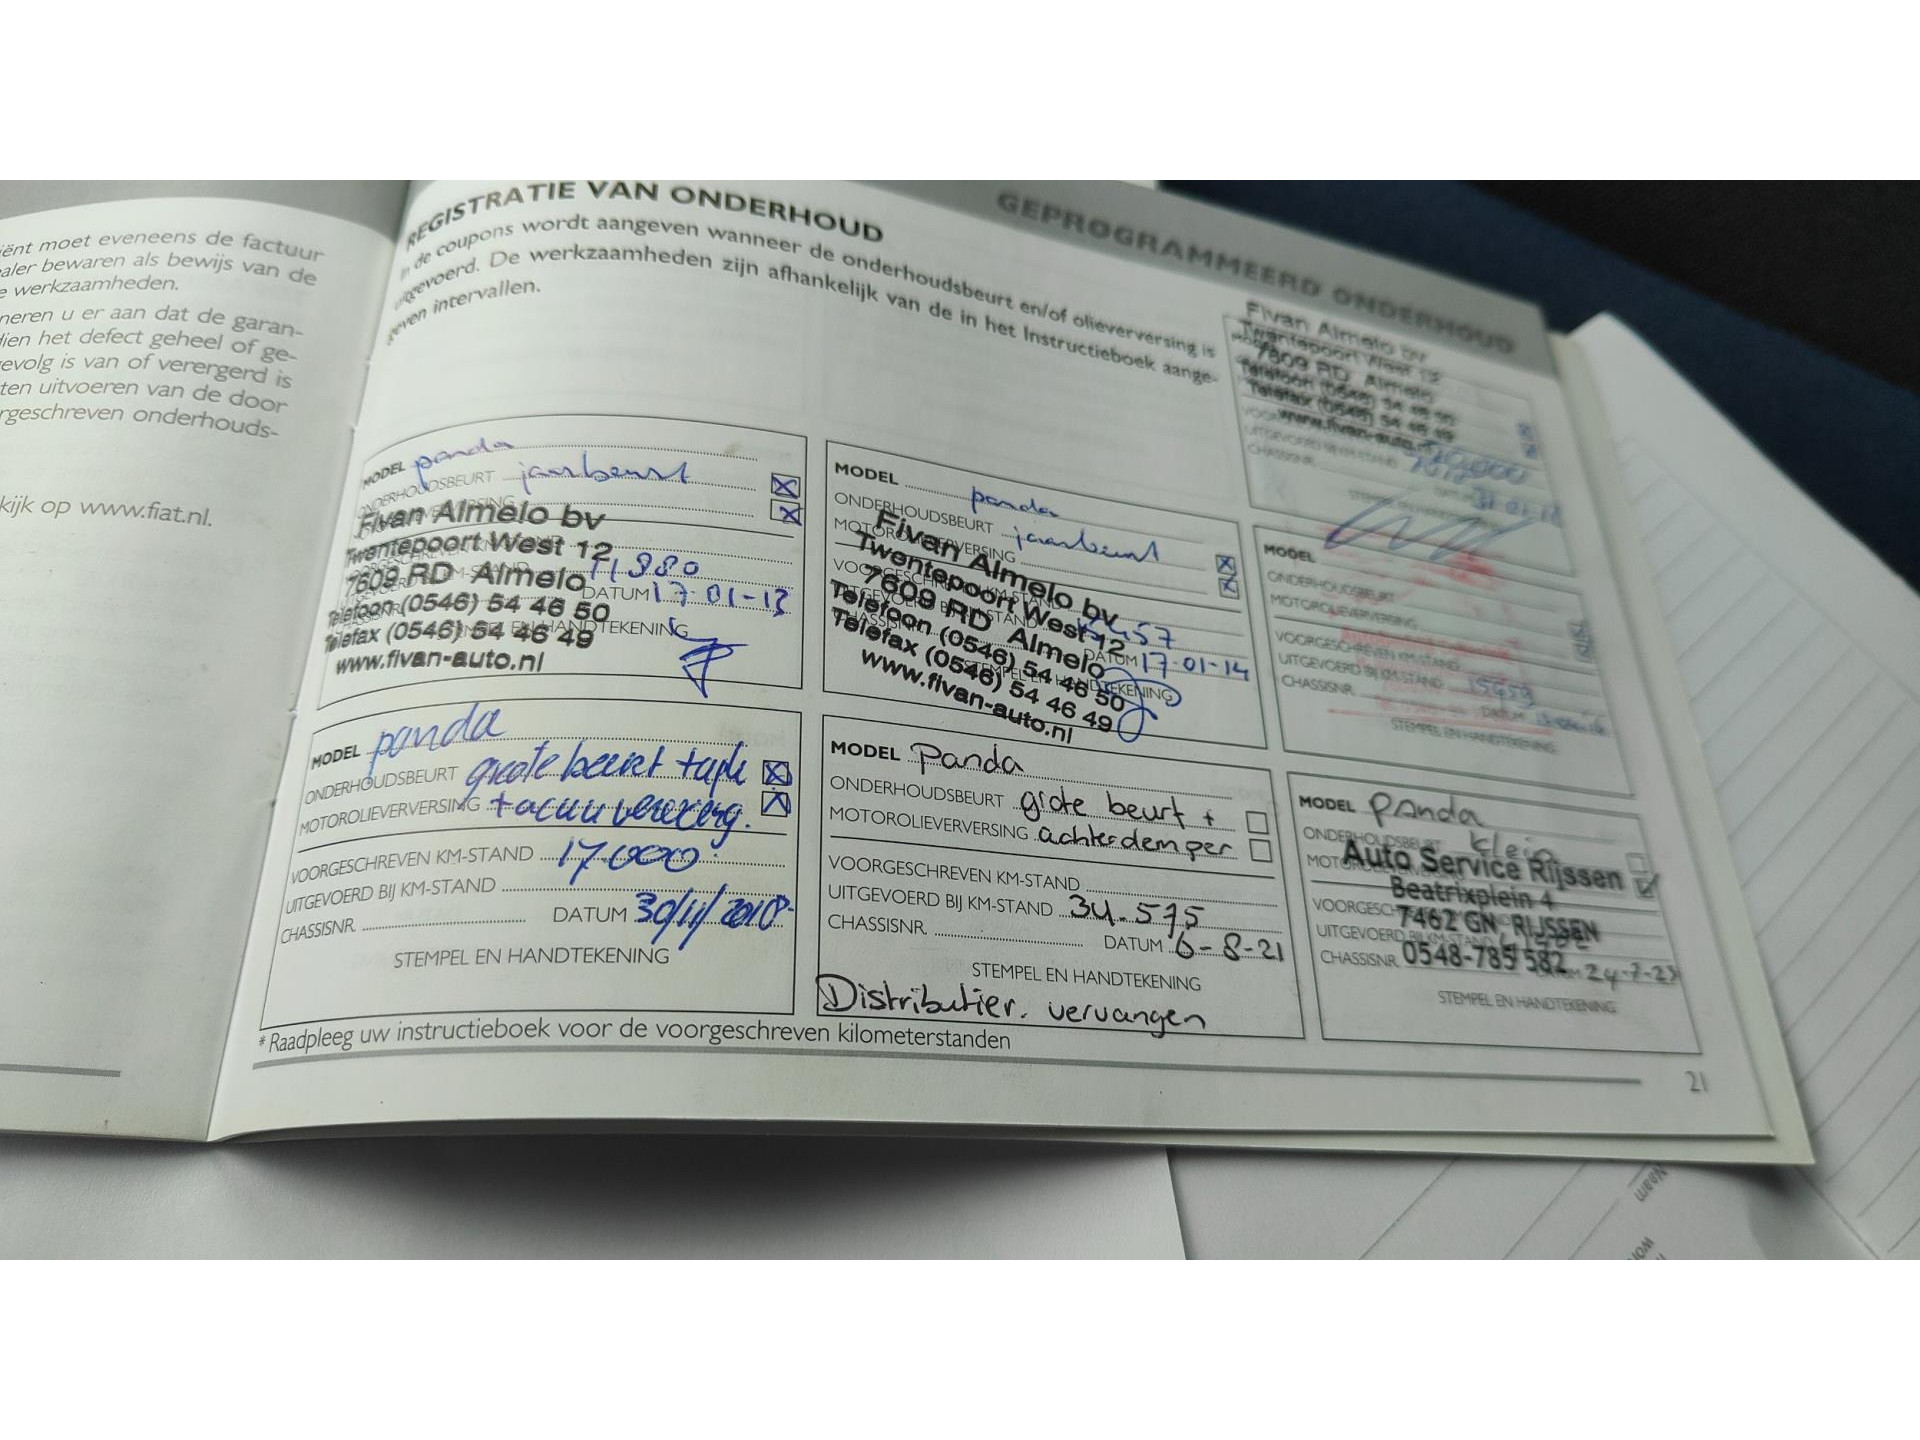 iënt moet eveneens de factuur
ealer bewaren als bewijs van de
e werkzaamheden.
neren u er aan dat de garan-
dien het defect geheel of ge-
evolg is van of verergerd is
ten uitvoeren van de door
rgeschreven onderhouds-
kijk op www.fiat.nl.
GEPROGRAMMEERD ONDERHOUD
REGISTRATIE VAN ONDERHOUD
In de coupons wordt aangeven wanneer de onderhoudsbeurt en/of olieverversing is
uitgevoerd. De werkzaamheden zijn afhankelijk van de in het Instructieboek aange-
geven intervallen.
MODEL panda
ONDERHOUDSBEURT jaarbeurt
Fivan Almelo bv
Twentepoort West 12
7609 RD Almelo
DATUM 17-01-13
Telefoon (0546) 54 46 50
STEMPEL EN HANDTEKENING
Telefax (0546) 54 46 49
www.fivan-auto.nl
MODEL panda
ONDERHOUDSBEURT jaarbeurt
MOTOROLIEVERVERSING
Fivan Almelo bv
Twentepoort West 12
7609 RD Almelo
DATUM 17-01-14
Telefoon (0546) 54 46 50
STEMPEL EN HANDTEKENING
Telefax (0546) 54 46 49
www.fivan-auto.nl
Fivan Almelo bv
Twentepoort West 12
7609 RD Almelo
Telefoon (0546) 54 46 50
Telefax (0546) 54 46 49
www.fivan-auto.nl
UITGEVOERD BIJ KM-STAND
CHASSISNR.
MODEL
ONDERHOUDSBEURT
MOTOROLIEVERVERSING
VOORGESCHREVEN KM-STAND
UITGEVOERD BIJ KM-STAND
CHASSISNR. DATUM
STEMPEL EN HANDTEKENING
MODEL panda
ONDERHOUDSBEURT grote beurt
MOTOROLIEVERVERSING
VOORGESCHREVEN KM-STAND 17.000
UITGEVOERD BIJ KM-STAND
CHASSISNR. DATUM 30/11/2018
STEMPEL EN HANDTEKENING
MODEL Panda
ONDERHOUDSBEURT grote beurt +
MOTOROLIEVERVERSING achterdemper
VOORGESCHREVEN KM-STAND
UITGEVOERD BIJ KM-STAND 34.575
CHASSISNR. DATUM 6-8-21
STEMPEL EN HANDTEKENING
Distributier. vervangen
MODEL Panda
ONDERHOUDSBEURT klein
Auto Service Rijssen
Beatrixplein 4
7462 GN RIJSSEN
CHASSISNR. 0548-785 582
24-7-23
STEMPEL EN HANDTEKENING
* Raadpleeg uw instructieboek voor de voorgeschreven kilometerstanden
21
Naam